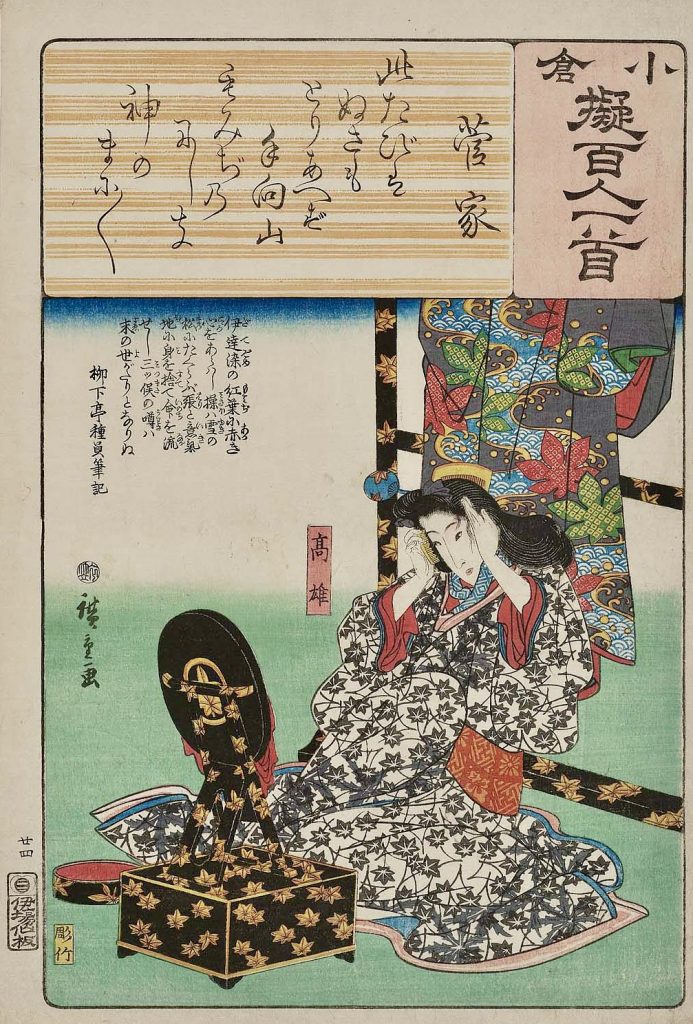 小倉
擬百人一首
菅家
此たびは
ぬさも
とりあへず
手向山
もみぢ乃
にしき
神の
まに〳〵
伊達染の紅葉に赤き
心をあらはし操ハ雪の
松にたくらふ張と意氣
地に身を捨て命を流
せし三ッ俣の噂ハ
末の世がたりとなりぬ
柳下亭種員筆記
高雄
廣重画
廿四
伊場仙板
彫竹